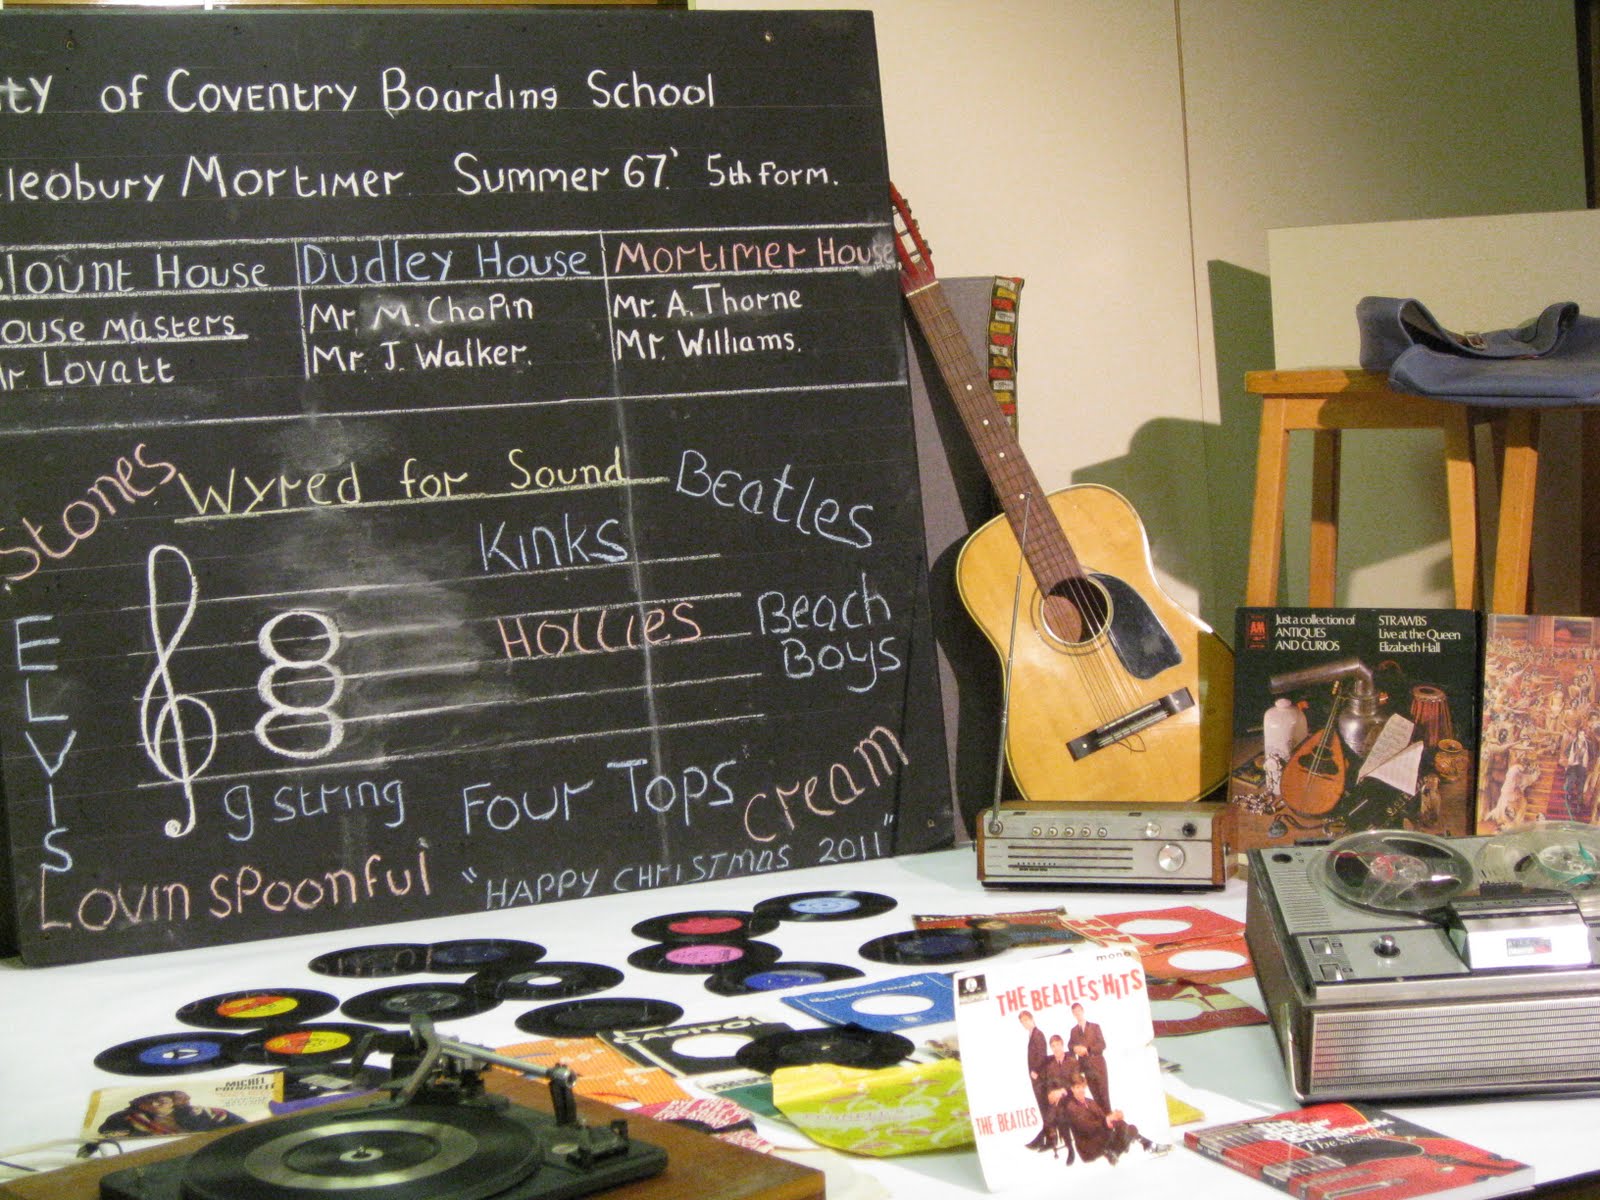 ty of Coventry Boarding School
leobury Mortimer. Summer 67.' 5th Form.
lount House Dudley House Mortimer House
ouse Masters Mr. M. Chopin Mr. A. Thorne
Mr. Lovatt Mr. J. Walker. Mr. Williams.
Stones
Wyred for Sound
Beatles
Kinks
Hollies
Beach
Boys
ELVIS
g string
Four Tops
Cream
Lovin Spoonful
"Happy Christmas 2011"
Just a collection of
ANTIQUES
AND CURIOS
STRAWBS
Live at the Queen
Elizabeth Hall
mono
THE BEATLES' HITS
THE BEATLES
CAPITOL
MICHEL
POLNAREFF
blue horizon records
The Sixties